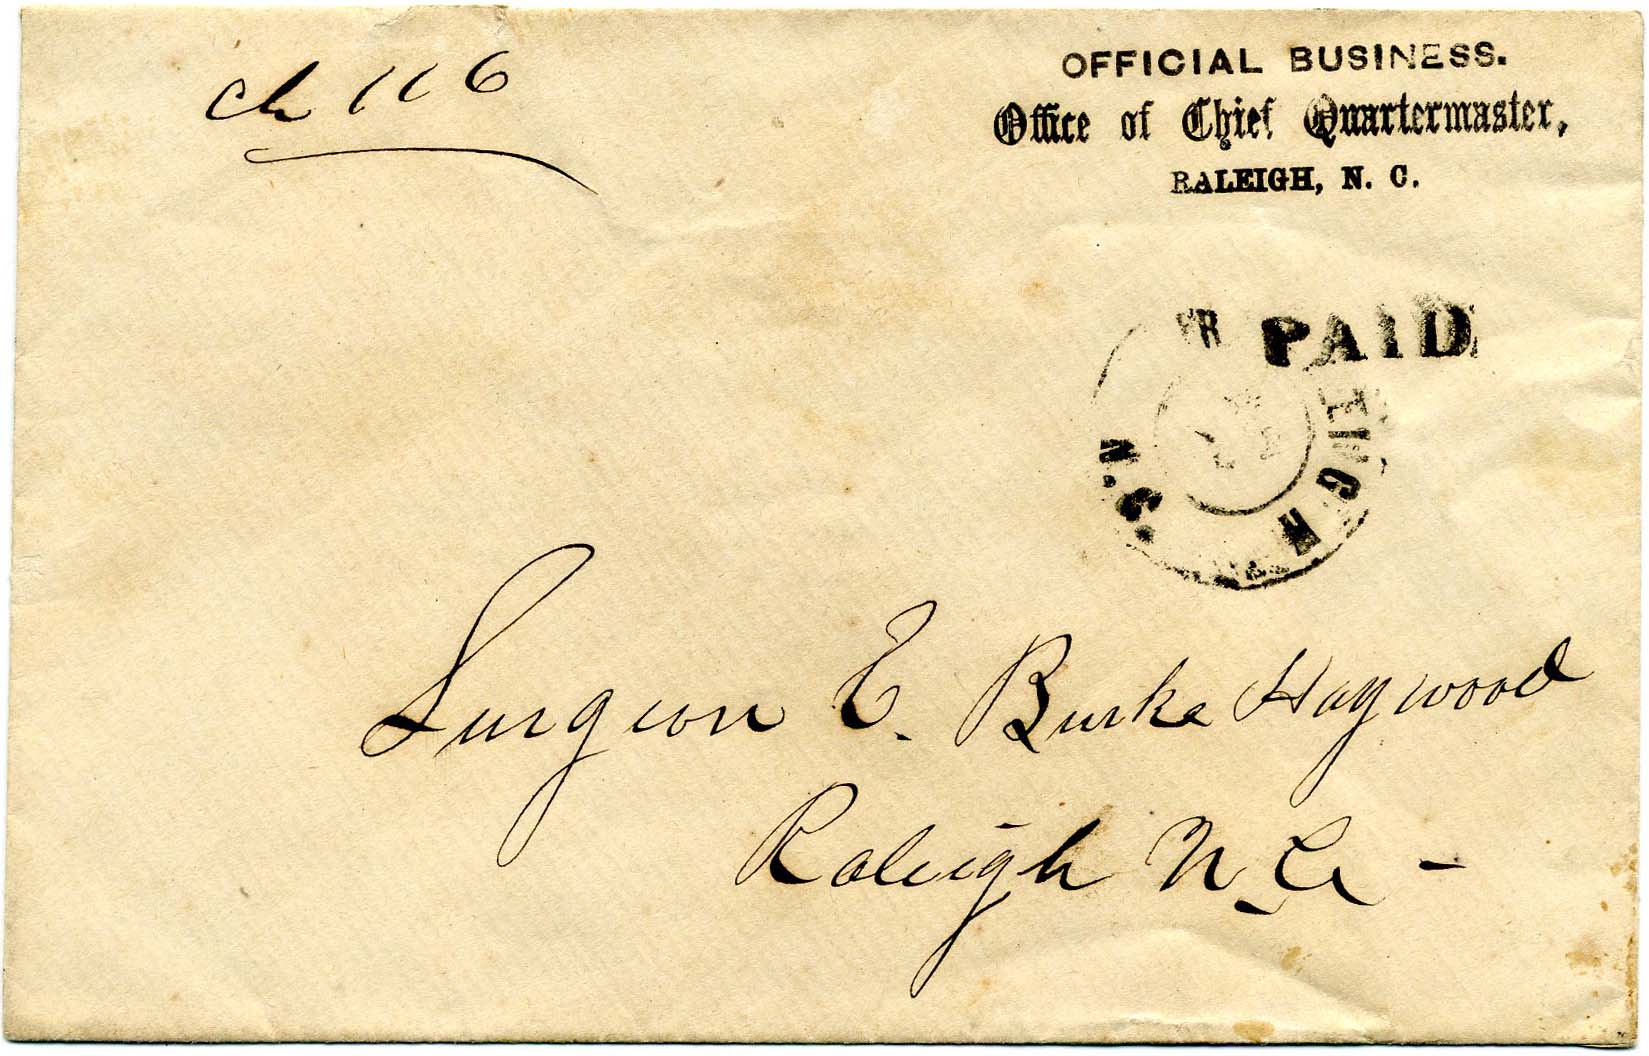 Ch 116
OFFICIAL BUSINESS.
Office of Chief Quartermaster,
RALEIGH, N. C.
PAID
N.C.
Surgeon E. Burke Haywood
Raleigh N. Ca -